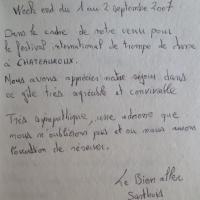 Week end du 1 au 2 septembre 2007
Dans le cadre de notre venu pour
le festival international de trompe de chasse
à CHATEAUROUX.
Nous avons apprécier notre séjour dans
ce gîte très agréable et convivable
Très sympathique, une adresse que
nous n'oublierons pas et ou nous aurons
l'occasion de revenir.
Le Bien aller